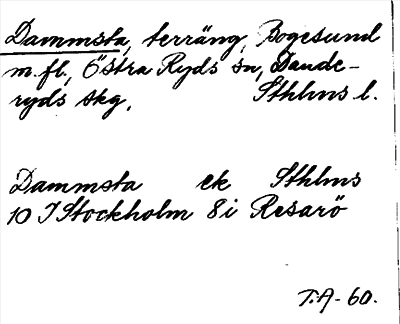 Dammsta, terräng, Bogesund
m.fl., Östra Ryds sn, Dande-
ryds skg, Sthlms l.
Dammsta ek Sthlms
10 I Stockholm 8 i Resarö
T.A-60.